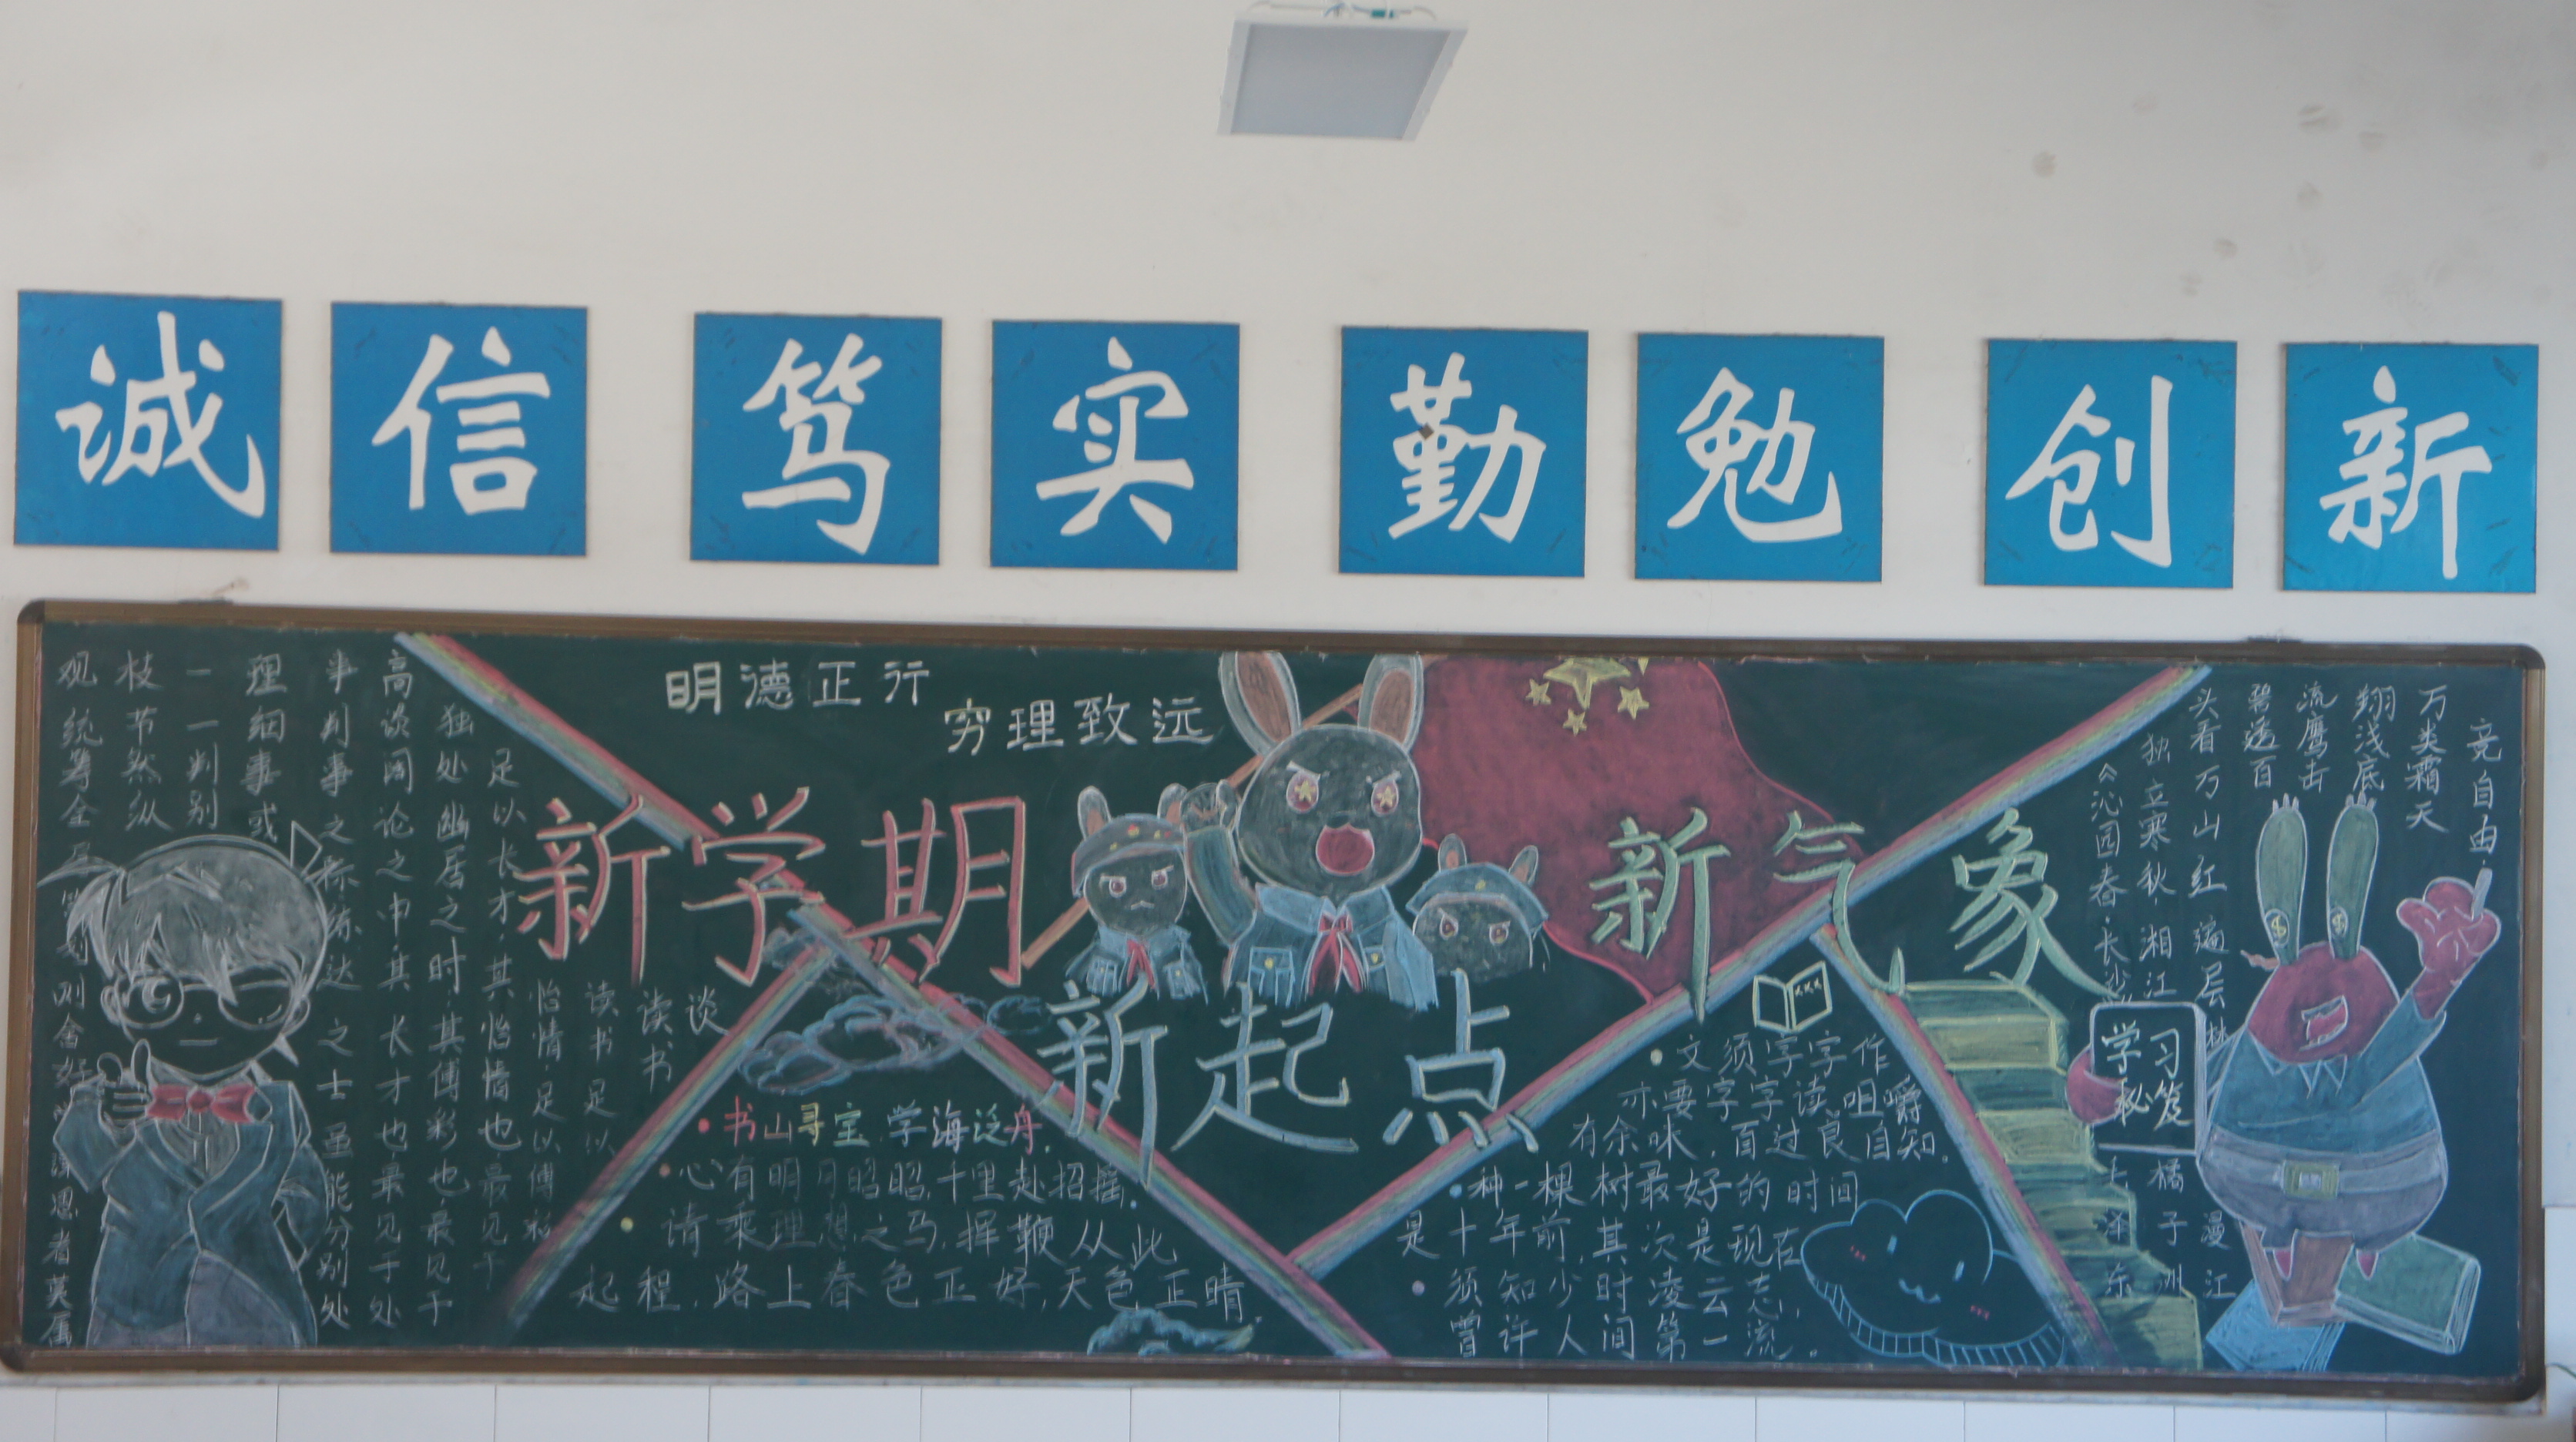 诚信 笃实 勤勉 创新
明德正行
穷理致远
新学期
新气象
新起点
谈
读书
读书足以
怡情·足以傅彩
足以长才·其怡情也最见于
独处幽居之时·其傅彩也·最见于
高谈阔论之中其长才也最见于处
事判事之际练达之士虽能分别处
理细事或
一一判别
枝节然纵
观统筹全
则舍好
深思者莫属
·书山寻宝.学海泛舟.
·心有明月昭昭.千里赴招摇.
·请乘理想之马.挥鞭从此
起程.路上春色正好.天色正晴
·文须字字作
亦要字字读.咀嚼
有余味.百过良自知.
·种一棵树最好的时间
是十年前.其次是现在.
·须知少时凌云志.
曾许人间第一流.
《沁园春·长沙
毛泽东
独立寒秋·湘江
橘子洲
头看万山红遍层林
漫江
碧透百
流鹰击
翔浅底
万类霜天
竞自由·
学习
秘笈